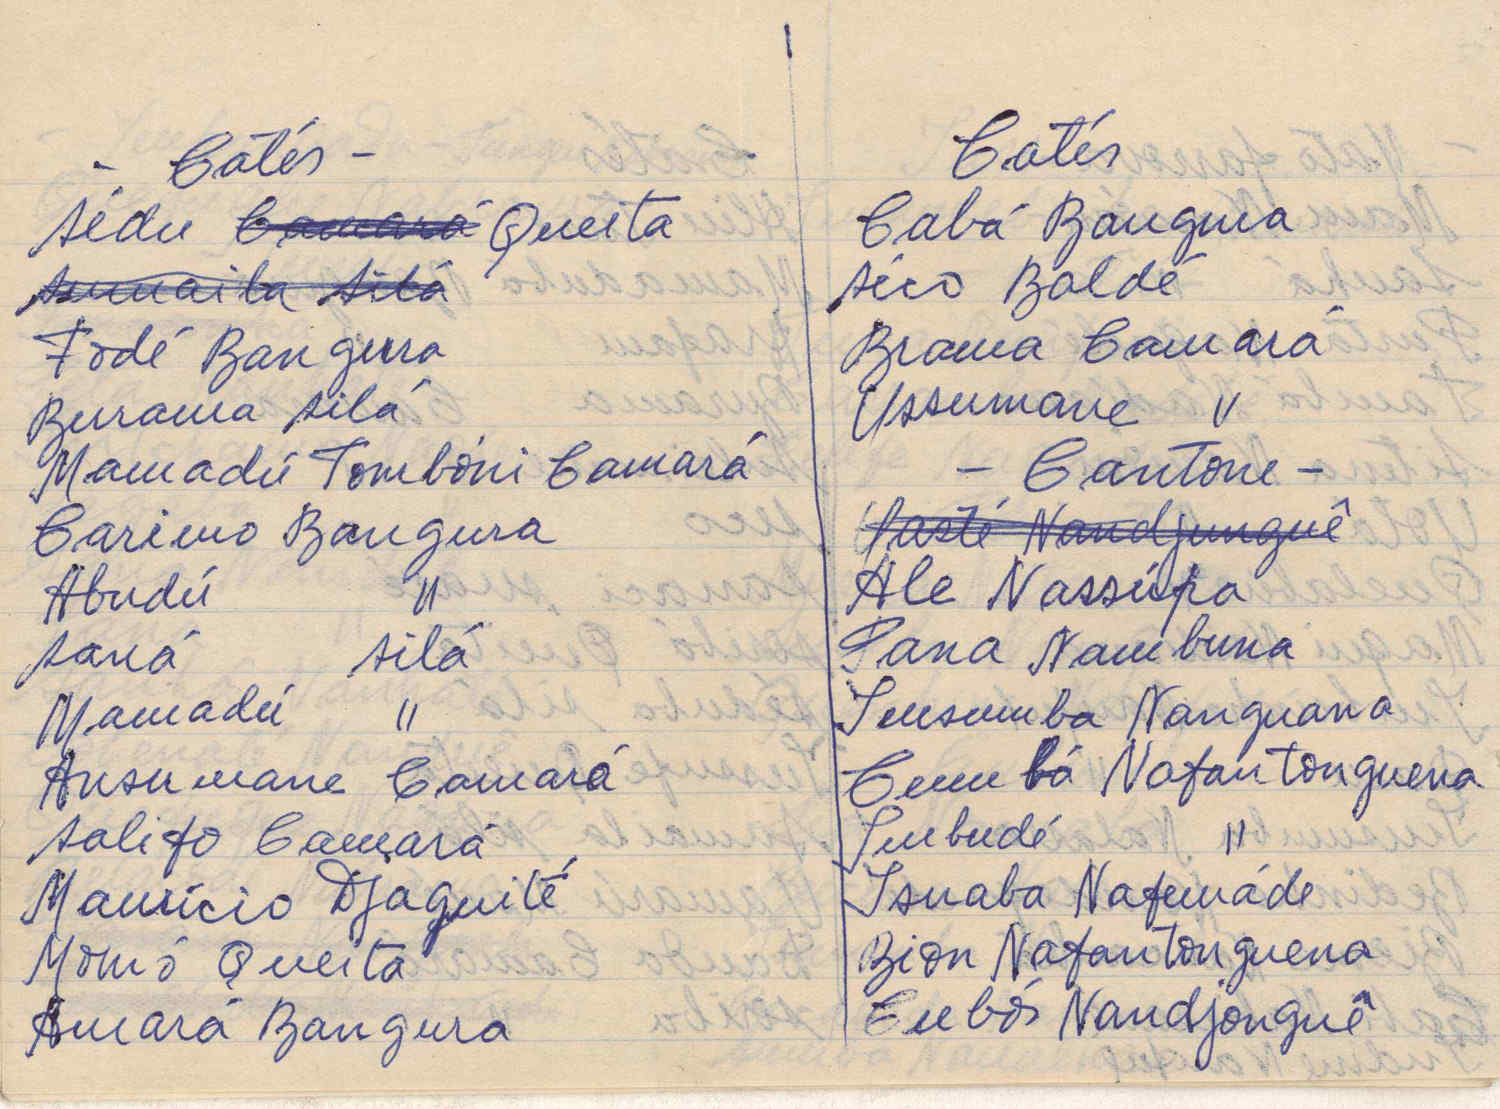 - Catés -
Sédu Camará Queita
Sumaila Silá
Fodé Bangura
Burama Silá
Mamadú Tombóni Camará
Carimo Bangura
Abudú "
Saná Silá
Mamadú "
Ansumane Camará
Salifo Camará
Maurício Djaguité
Momó Queita
Amará Bangura
Catés
Cabá Bangura
Sico Baldé
Brama Camará
Ussumane "
- Cantone -
Nandjunguê
Ale Nassúfa
Pana Nambuna
Insumba Nanguana
Cumbá Nafantonguena
Imbudé "
Isnaba Nafumáde
Bion Nafantonguena
Nandjonguê